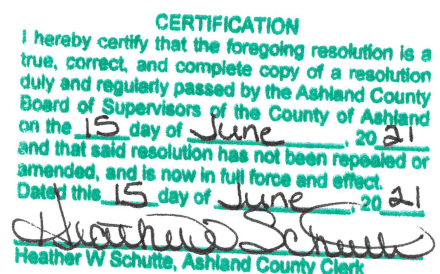 CERTIFICATION
I hereby certify that the foregoing resolution is a
true, correct, and complete copy of a resolution
duly and regularly passed by the Ashland County
Board of Supervisors of the County of Ashland
on the 15 day of June, 2021
and that said resolution has not been repealed or
amended, and is now in full force and effect.
Dated this 15 day of June, 2021
Heather W Schutte
Heather W Schutte, Ashland County Clerk